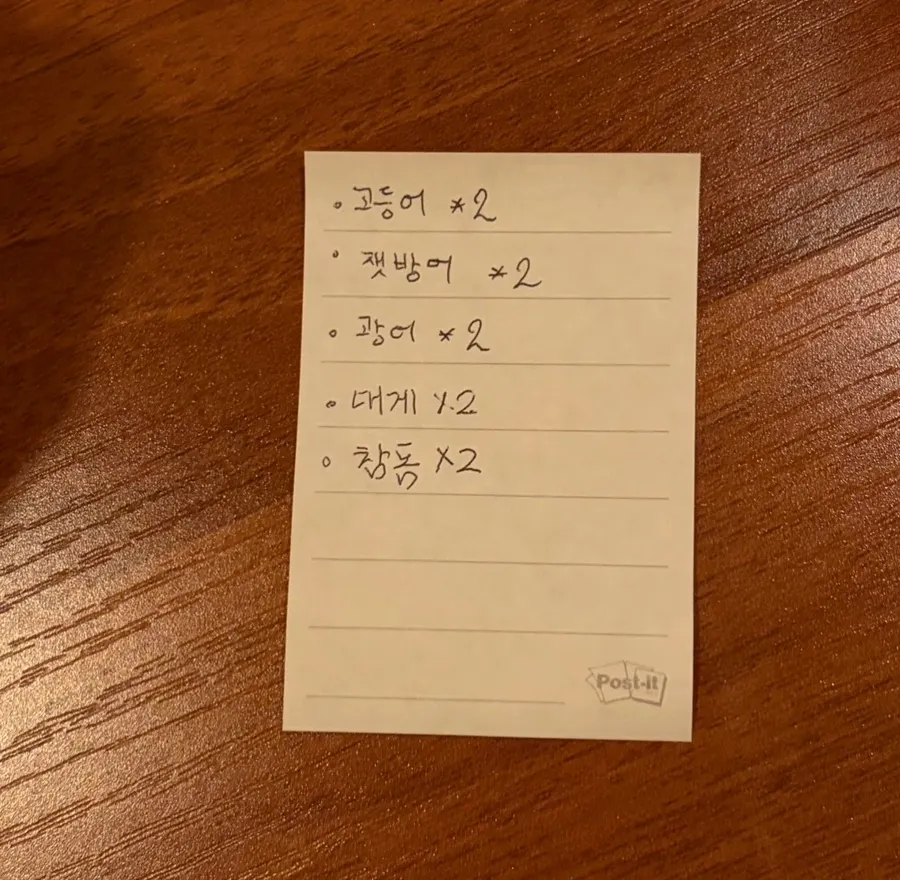 ◦ 고등어 *2
◦ 잿방어 *2
◦ 광어 *2
◦ 대게 x2
◦ 참돔 x2
Post-it